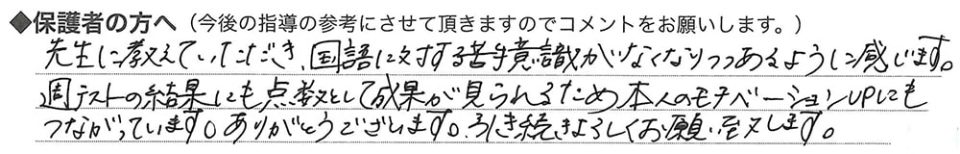 ◆保護者の方へ（今後の指導の参考にさせて頂きますのでコメントをお願いします。）
先生に教えていただき、国語に対する苦手意識がなくなりつつあるように感じます。
週テストの結果にも点数として成果が見られるため本人のモチベーションUPにも
つながっています。ありがとうございます。引き続きよろしくお願い致します。